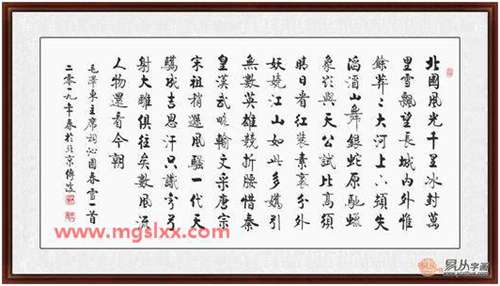 北國風光千里冰封萬
里雪飄望長城内外惟
餘莽々大河上下頓失
滔滔山舞銀蛇原馳蠟
象欲與天公試比高須
晴日看红裝素裹分外
妖嬈江山如此多嬌引
無數英雄競折腰惜秦
皇漢武略輸文采唐宗
宋祖稍遜風騷一代天
驕成吉思汗只識彎弓
射大雕俱往矣數風流
人物還看今朝
毛澤東主席詞沁园春雪一首
二零一九年春於北京
www.mgslxx.com
易从字画